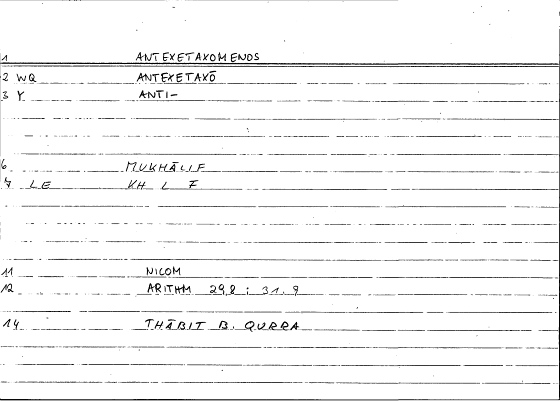 1 ANTEXETAXOMENOS
2 WQ ANTEXETAXŌ
3 Y ANTI-
6 MUKHĀLIF
7 LE KH L F
11 NICOM
12 ARITHM 29,8 ; 31.9
14 THĀBIT B. QURRA